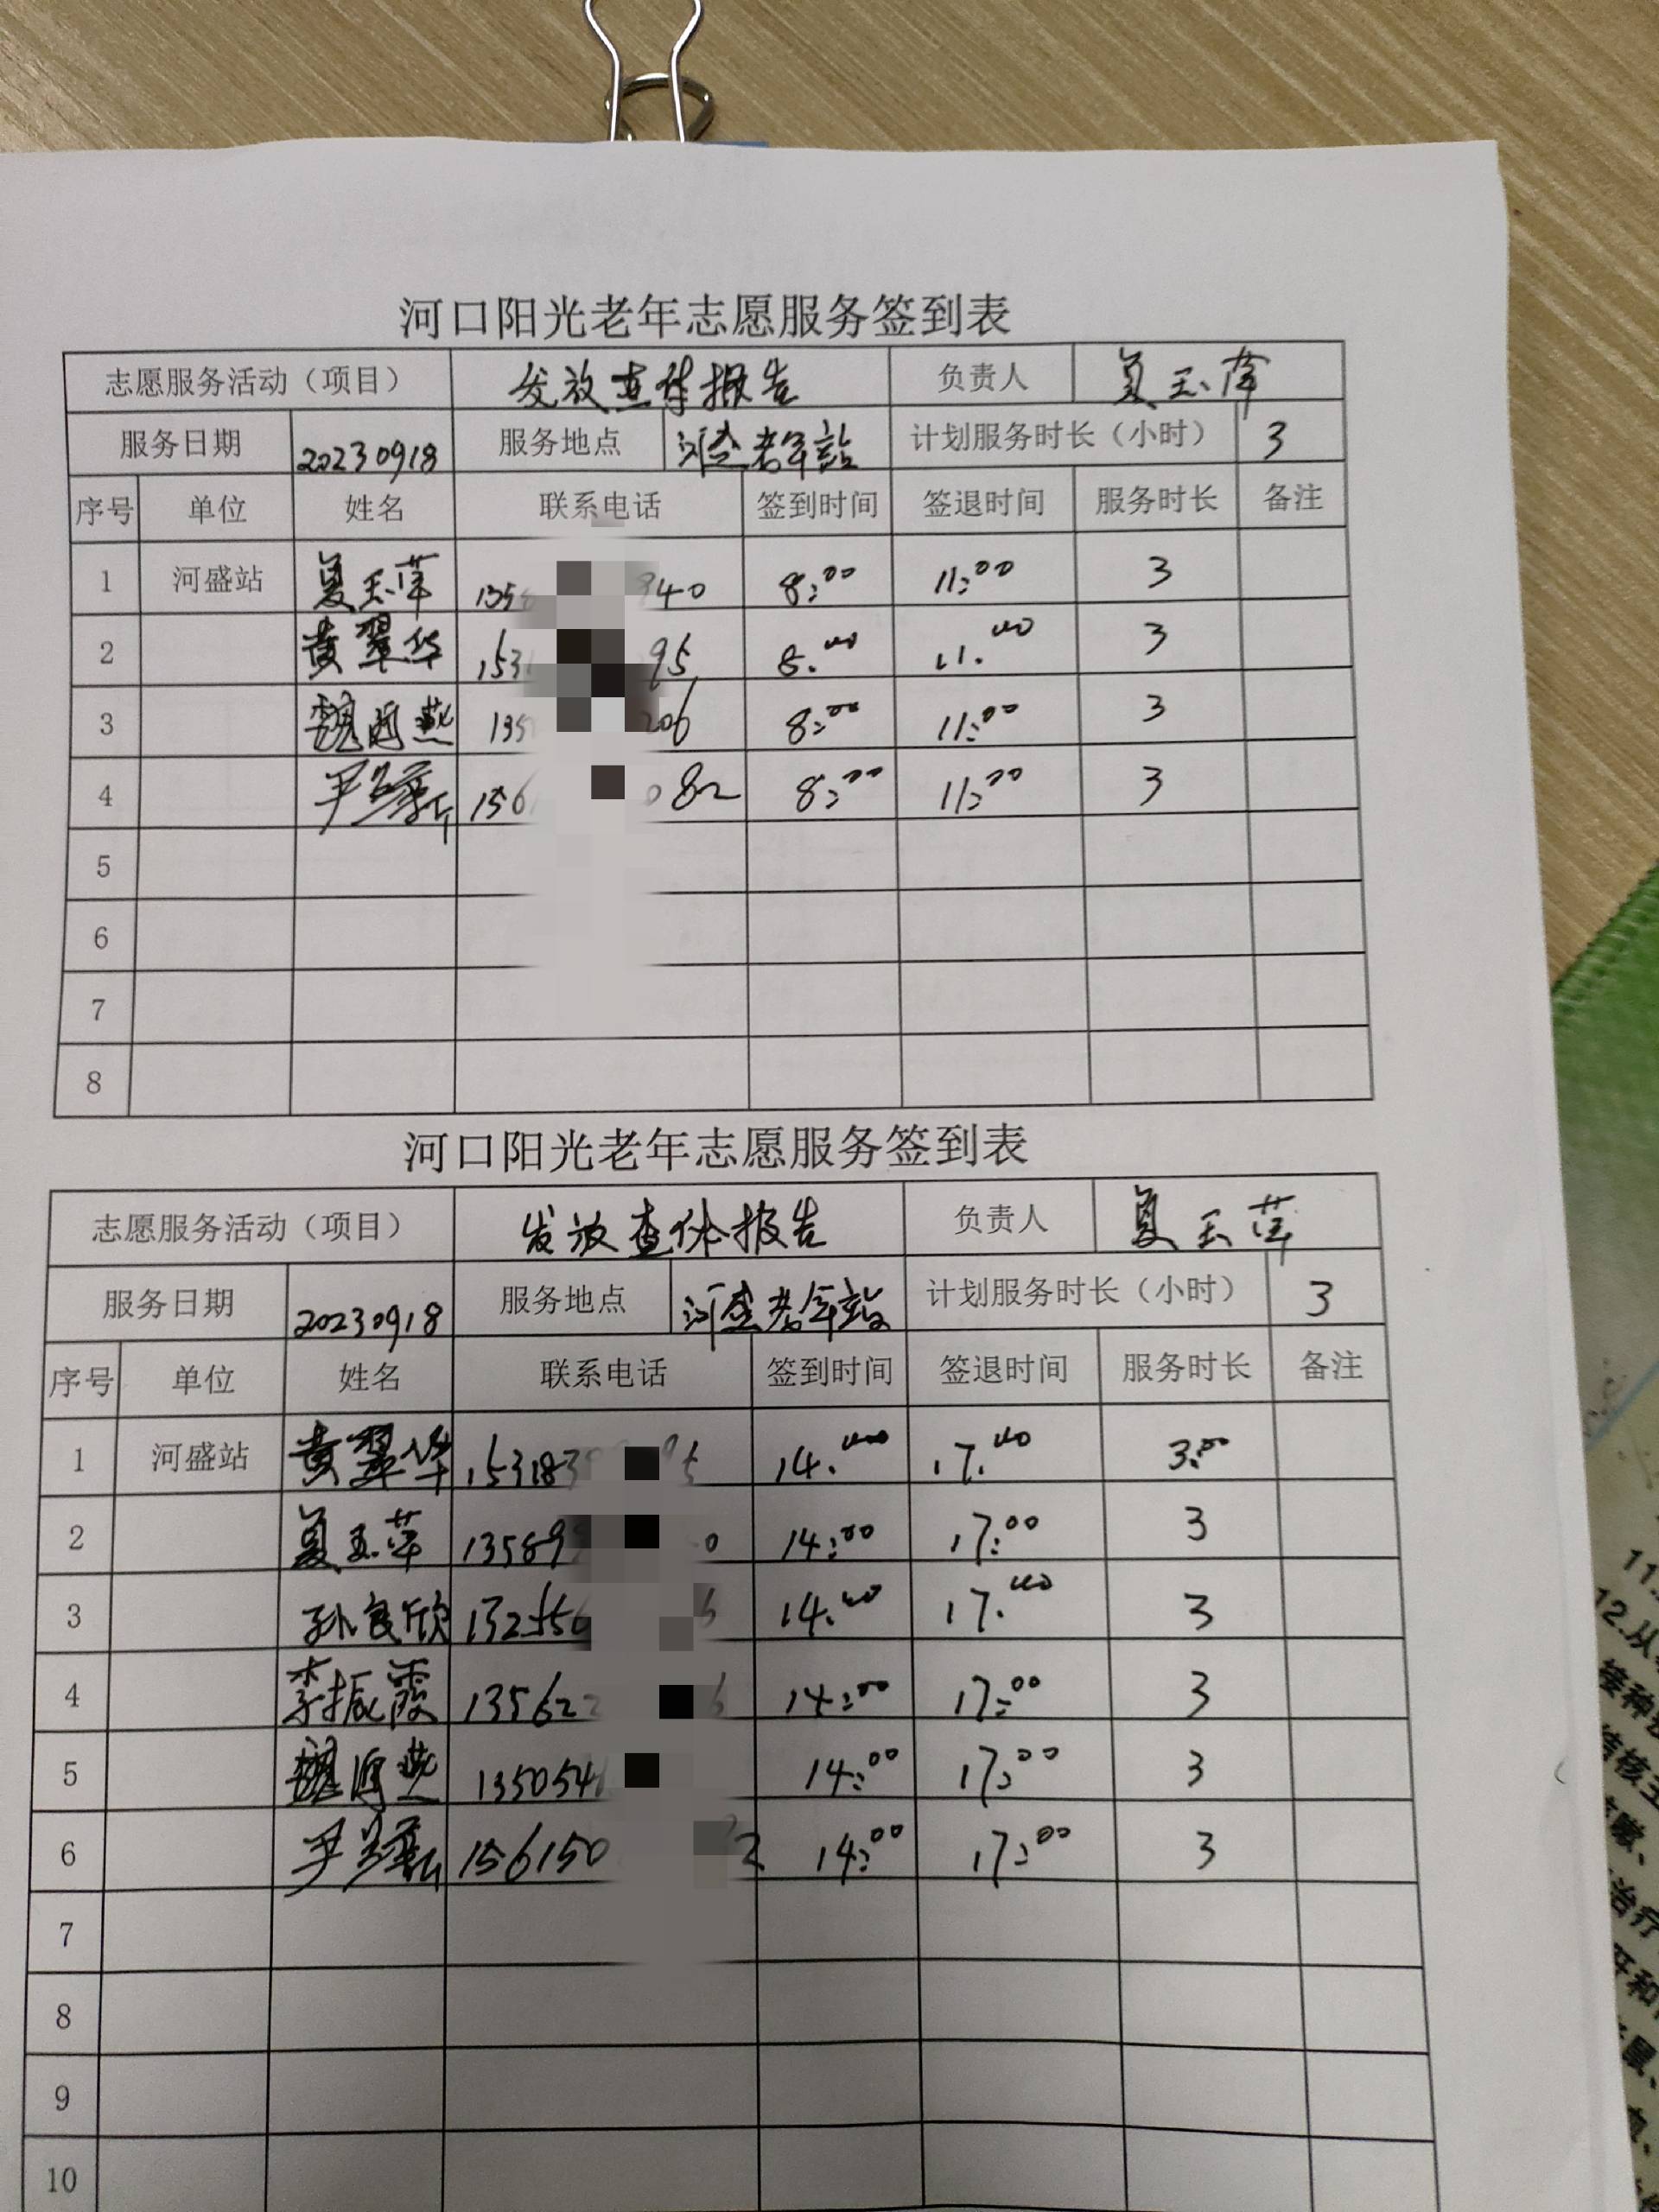 河口阳光老年志愿服务签到表
志愿服务活动（项目） 发放查体报告 负责人 夏玉萍
服务日期 20230918 服务地点 河盛老年站 计划服务时长（小时） 3
序号 单位 姓名 联系电话 签到时间 签退时间 服务时长 备注
1 河盛站 夏玉萍 135 940 8:00 11:00 3
2 黄翠华 153 95 8.00 11.00 3
3 魏海燕 135 206 8:00 11:00 3
4 尹 156 082 8:00 11:00 3
5
6
7
8
河口阳光老年志愿服务签到表
志愿服务活动（项目） 发放查体报告 负责人 夏玉萍
服务日期 20230918 服务地点 河盛老年站 计划服务时长（小时） 3
序号 单位 姓名 联系电话 签到时间 签退时间 服务时长 备注
1 河盛站 黄翠华 153183 5 14.00 17.00 3:00
2 夏玉萍 13589 0 14:00 17:00 3
3 孙良欣 13255 14.00 17.00 3
4 李振霞 13562 6 14:00 17:00 3
5 魏海燕 135054 14:00 17:00 3
6 尹 156150 2 14:00 17:00 3
7
8
9
10
11.
12.从
接种
结核
嗽、
治疗
牙和
鼠、